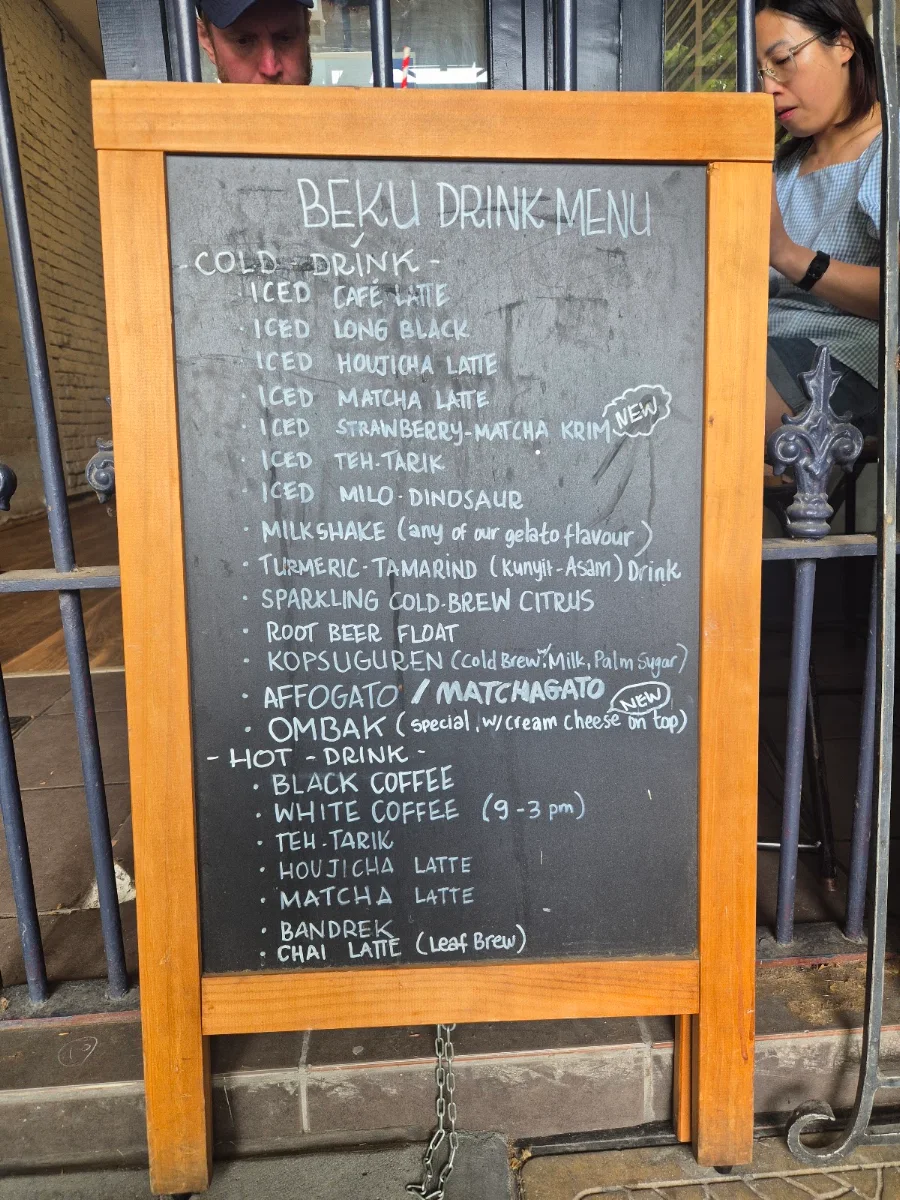 BEKU DRINK MENU
- COLD - DRINK -
ICED CAFÉ LATTE
· ICED LONG BLACK
· ICED HOUJICHA LATTE
· ICED MATCHA LATTE
· ICED STRAWBERRY-MATCHA KRIM NEW
· ICED TEH-TARIK
· ICED MILO-DINOSAUR
· MILKSHAKE (any of our gelato flavour)
· TURMERIC-TAMARIND (Kunyit-Asam) Drink
· SPARKLING COLD-BREW CITRUS
· ROOT BEER FLOAT
· KOPSUGUREN (Cold Brew, Milk, Palm Sugar)
· AFFOGATO / MATCHAGATO NEW
· OMBAK (special, w/cream cheese on top)
- HOT - DRINK -
· BLACK COFFEE
· WHITE COFFEE (9-3 pm)
· TEH-TARIK
· HOUJICHA LATTE
· MATCHA LATTE
· BANDREK
· CHAI LATTE (Leaf Brew)